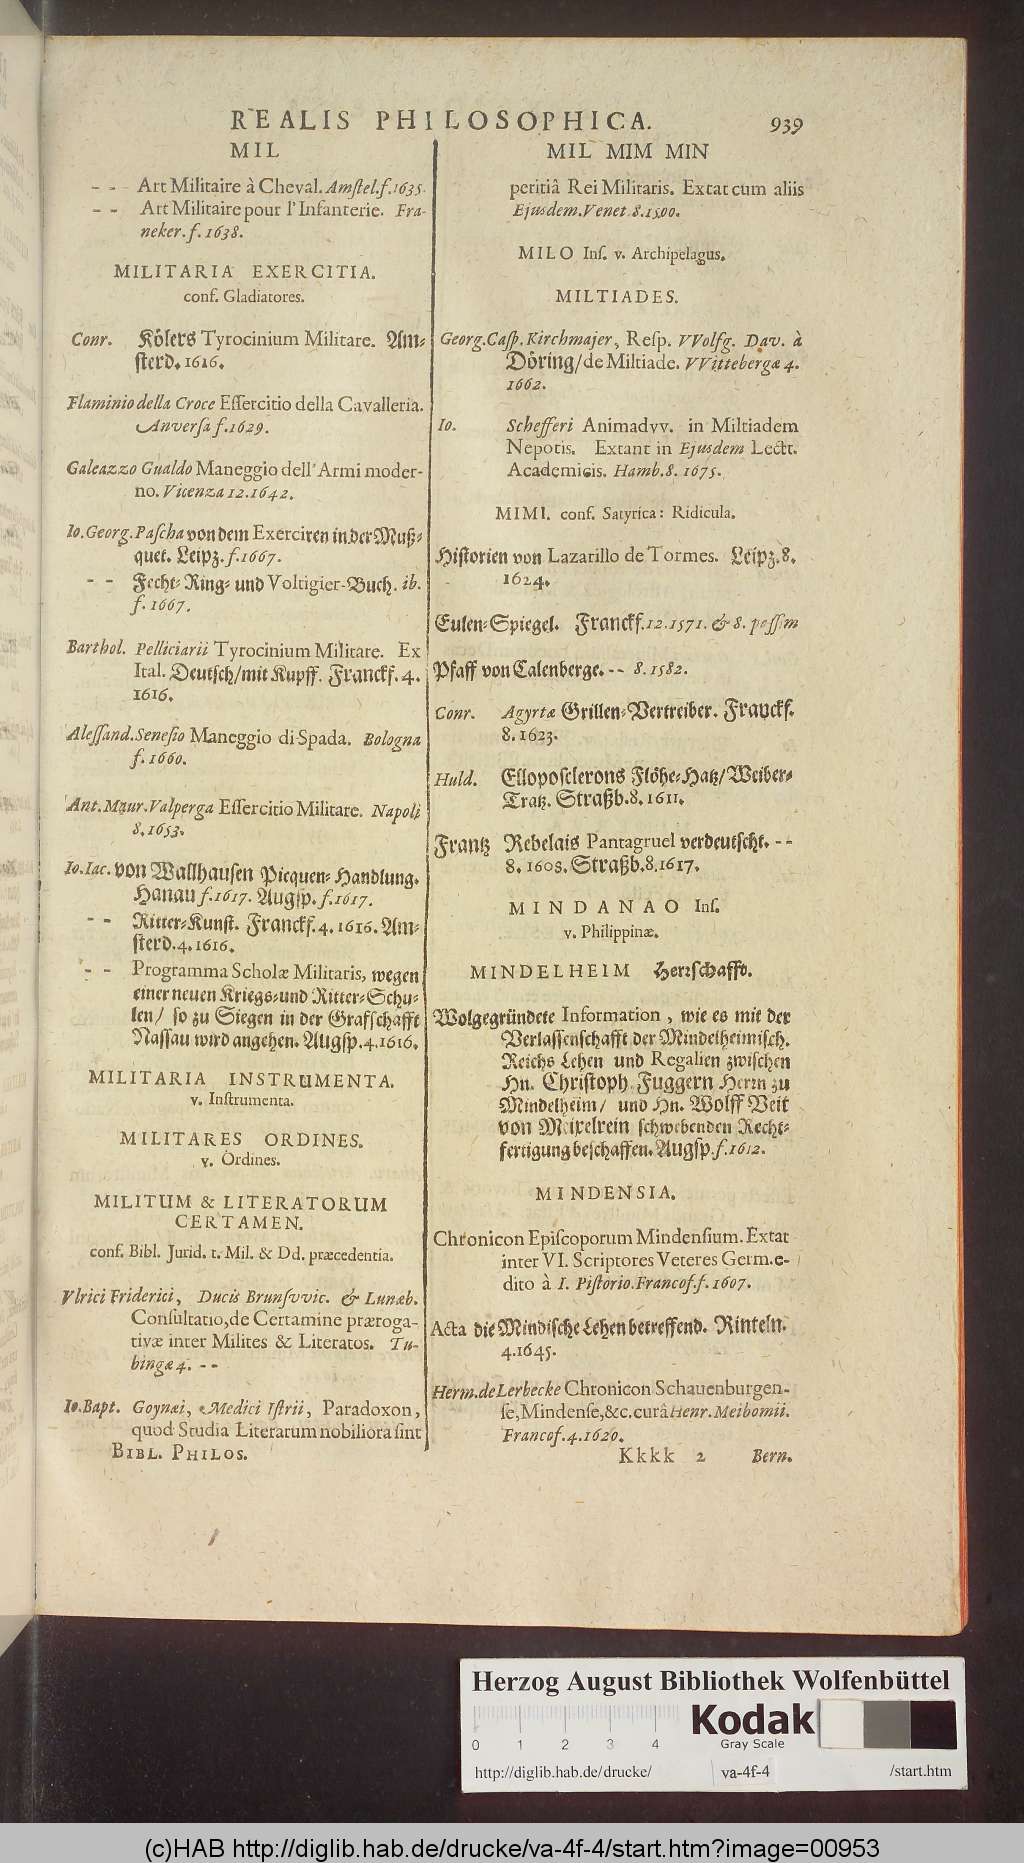 REALIS PHILOSOPHICA. 939
MIL
- - - Art Militaire à Cheval. Amſtel. f. 1635.
- - Art Militaire pour l'Infanterie. Fra-
neker. f. 1638.
MILITARIA EXERCITIA.
conf. Gladiatores.
Conr. Kölers Tyrocinium Militare. Am-
ſterd. 1616.
Flaminio della Croce Eſſercitio della Cavalleria.
Anverſa f. 1629.
Galeazzo Gualdo Maneggio dell' Armi moder-
no. Vicenza 12. 1642.
Io. Georg. Paſcha von dem Exerciren in der Muß-
quet. Leipz. f. 1667.
- - Fecht- Ring- und Voltigier-Buch. ib.
f. 1667.
Barthol. Pelliciarii Tyrocinium Militare. Ex
Ital. Deutſch/ mit Kupff. Franckf. 4.
1616.
Aleſſand. Seneſio Maneggio di Spada. Bologna
f. 1660.
Ant. Maur. Valperga Eſſercitio Militare. Napoli
8. 1653.
Io. Iac. von Wallhauſen Picquen-Handlung.
Hanau f. 1617. Augſp. f. 1617.
- - Ritter-Kunſt. Franckf. 4. 1616. Am-
ſterd. 4. 1616.
- - Programma Scholæ Militaris, wegen
einer neuen Kriegs- und Ritter-Schu-
len/ ſo zu Siegen in der Grafſchafft
Naſſau wird angehen. Augſp. 4. 1616.
MILITARIA INSTRUMENTA.
v. Inſtrumenta.
MILITARES ORDINES.
v. Ordines.
MILITUM & LITERATORUM
CERTAMEN.
conf. Bibl. Jurid. t. Mil. & Dd. præcedentia.
Vlrici Friderici, Ducis Brunſvvic. & Lunæb.
Conſultatio, de Certamine præroga-
tivæ inter Milites & Literatos. Tu-
bingæ 4. - -
Io. Bapt. Goynæi, Medici Iſtrii, Paradoxon,
quod Studia Literarum nobiliora ſint
BIBL. PHILOS.
MIL MIM MIN
peritiâ Rei Militaris. Extat cum aliis
Ejusdem. Venet. 8. 1500.
MILO Inſ. v. Archipelagus.
MILTIADES.
Georg. Caſp. Kirchmajer, Reſp. VVolfg. Dav. à
Döring/ de Miltiade. VVittebergæ 4.
1662.
Io. Schefferi Animadvv. in Miltiadem
Nepotis. Extant in Ejusdem Lectt.
Academicis. Hamb. 8. 1675.
MIMI. conf. Satyrica: Ridicula.
Hiſtorien von Lazarillo de Tormes. Leipz. 8.
1624.
Eulen-Spiegel. Franckf. 12. 1571. & 8. paſſim
Pfaff von Calenberge. - - 8. 1582.
Conr. Agyrtæ Grillen-Vertreiber. Franckf.
8. 1623.
Huld. Ellopoſclerons Flöhe-Hatz/ Weiber-
Tratz. Straßb. 8. 1611.
Frantz Rebelais Pantagruel verdeutſcht. - -
8. 1608. Straßb. 8. 1617.
MINDANAO Inſ.
v. Philippinæ.
MINDELHEIM Herrſchafft.
Wolgegründete Information, wie es mit der
Verlaſſenſchafft der Mindelheimiſch.
Reichs Lehen und Regalien zwiſchen
Hn. Chriſtoph Fuggern Herrn zu
Mindelheim/ und Hn. Wolff Veit
von Meixelrein ſchwebenden Recht-
fertigung beſchaffen. Augſp. f. 1612.
MINDENSIA.
Chronicon Epiſcoporum Mindenſium. Extat
inter VI. Scriptores Veteres Germ. e-
dito à I. Piſtorio. Francof. f. 1607.
Acta die Mindiſche Lehen betreffend. Rinteln.
4. 1645.
Herm. de Lerbecke Chronicon Schauenburgen-
ſe, Mindenſe, &c. curâ Henr. Meibomii.
Francof. 4. 1620.
Kkkk 2 Bern.
Herzog August Bibliothek Wolfenbüttel
Kodak
Gray Scale
0 1 2 3 4
http://diglib.hab.de/drucke/ va-4f-4 /start.htm
(c)HAB http://diglib.hab.de/drucke/va-4f-4/start.htm?image=00953